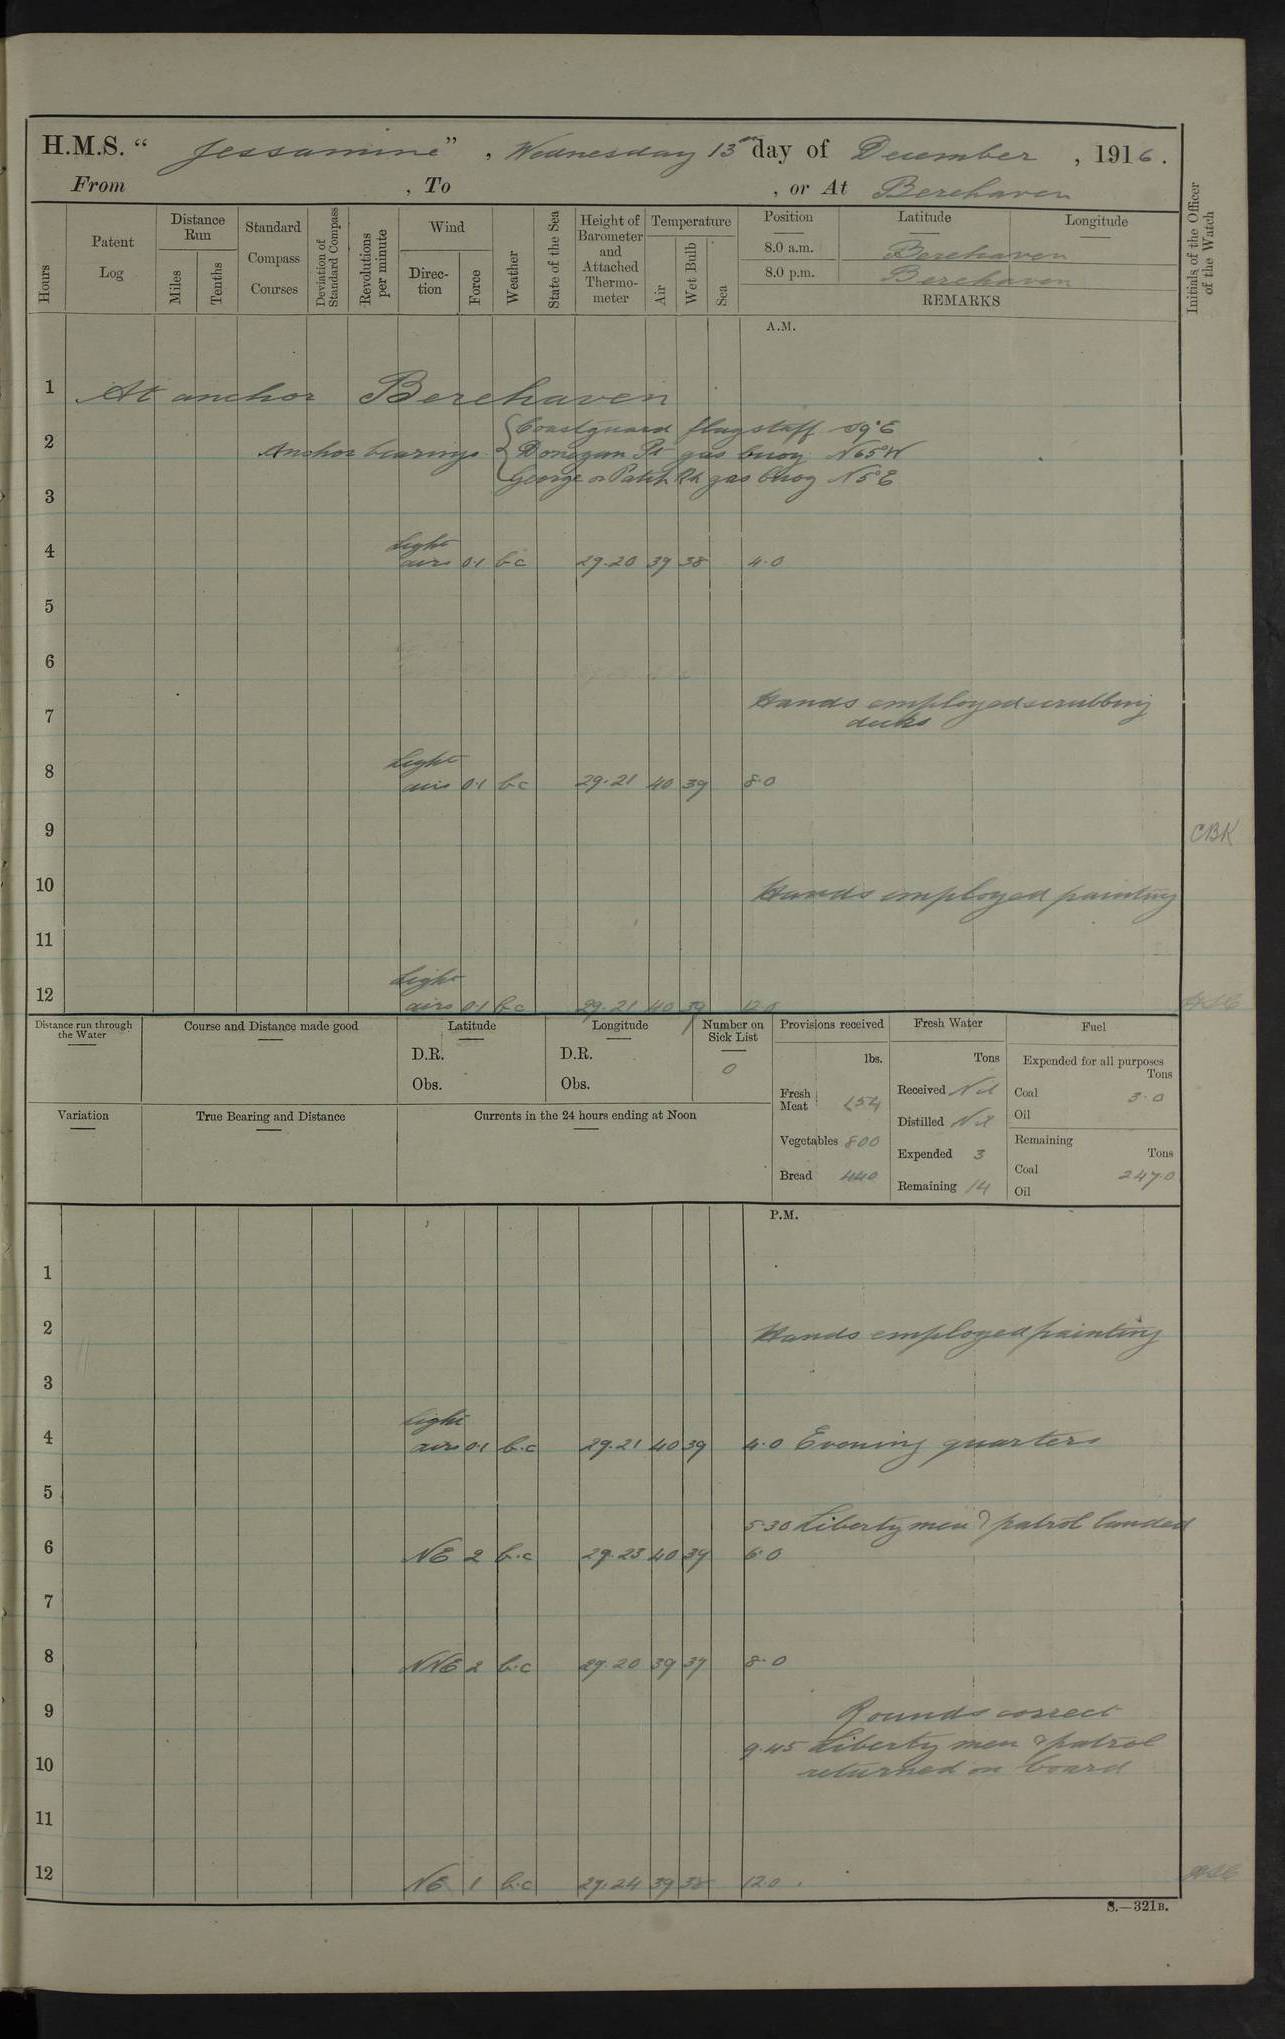 H.M.S. “ Jessamine ” , Wednesday 13th day of December , 1916.
From , To , or At Berehaven
Hours
Patent Log
Distance Run
Miles
Tenths
Standard Compass Courses
Deviation of Standard Compass
Revolutions per minute
Wind
Direc- tion
Force
Weather
State of the Sea
Height of Barometer and Attached Thermo- meter
Temperature
Air
Wet Bulb
Sea
Position Latitude Longitude
8.0 a.m. Berehaven
8.0 p.m. Berehaven
REMARKS
Initials of the Officer of the Watch
A.M.
1 At anchor Berehaven
Coastguard flagstaff S9°E
2 Anchor bearings Donegan Pt gas buoy N65°W
George or Patch Rk gas buoy N5°E
3
4 Light airs 0.1 b.c 29.20 39 38 4.0
5
6
Hands employed scrubbing
7 decks
8 Light airs 0.1 b.c 29.21 40 39 8.0
9 CBK
10 Hands employed painting
11
12 Light airs 0.1 b.c 29.21 40 39 12.0
Distance run through the Water
Course and Distance made good
Latitude
D.R.
Obs.
Longitude
D.R.
Obs.
Number on Sick List
0
Variation
True Bearing and Distance
Currents in the 24 hours ending at Noon
Provisions received
lbs.
Fresh Meat
Vegetables 800
Bread 440
Fresh Water
Tons
Received Nil
Distilled Nil
Expended 3
Remaining 14
Fuel
Expended for all purposes
Tons
Coal 3.0
Oil
Remaining
Tons
Coal 247.0
Oil
P.M.
1
2 Hands employed painting
3
4 Light airs 0.1 b.c 29.21 40 39 4.0 Evening quarters
5
5.30 Liberty men & patrol landed
6 NE 2 b.c 29.23 40 39 6.0
7
8 NNE 2 b.c 29.20 39 37 8.0
9 Rounds correct
9.45 Liberty men & patrol
10 returned on board
11
12 NE 1 b.c 29.24 39 38 12.0
S.—321B.